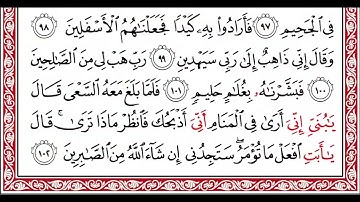 فِى ٱلْجَحِيمِ ٩٧ فَأَرَادُوا۟ بِهِۦ كَيْدًا فَجَعَلْنَٰهُمُ ٱلْأَسْفَلِينَ ٩٨
وَقَالَ إِنِّى ذَاهِبٌ إِلَىٰ رَبِّى سَيَهْدِينِ ٩٩ رَبِّ هَبْ لِى مِنَ ٱلصَّٰلِحِينَ
١٠٠ فَبَشَّرْنَٰهُ بِغُلَٰمٍ حَلِيمٍ ١٠١ فَلَمَّا بَلَغَ مَعَهُ ٱلسَّعْىَ قَالَ
يَٰبُنَىَّ إِنِّىٓ أَرَىٰ فِى ٱلْمَنَامِ أَنِّىٓ أَذْبَحُكَ فَٱنظُرْ مَاذَا تَرَىٰ ۚ قَالَ
يَٰٓأَبَتِ ٱفْعَلْ مَا تُؤْمَرُ ۖ سَتَجِدُنِىٓ إِن شَآءَ ٱللَّهُ مِنَ ٱلصَّٰبِرِينَ ١٠٢